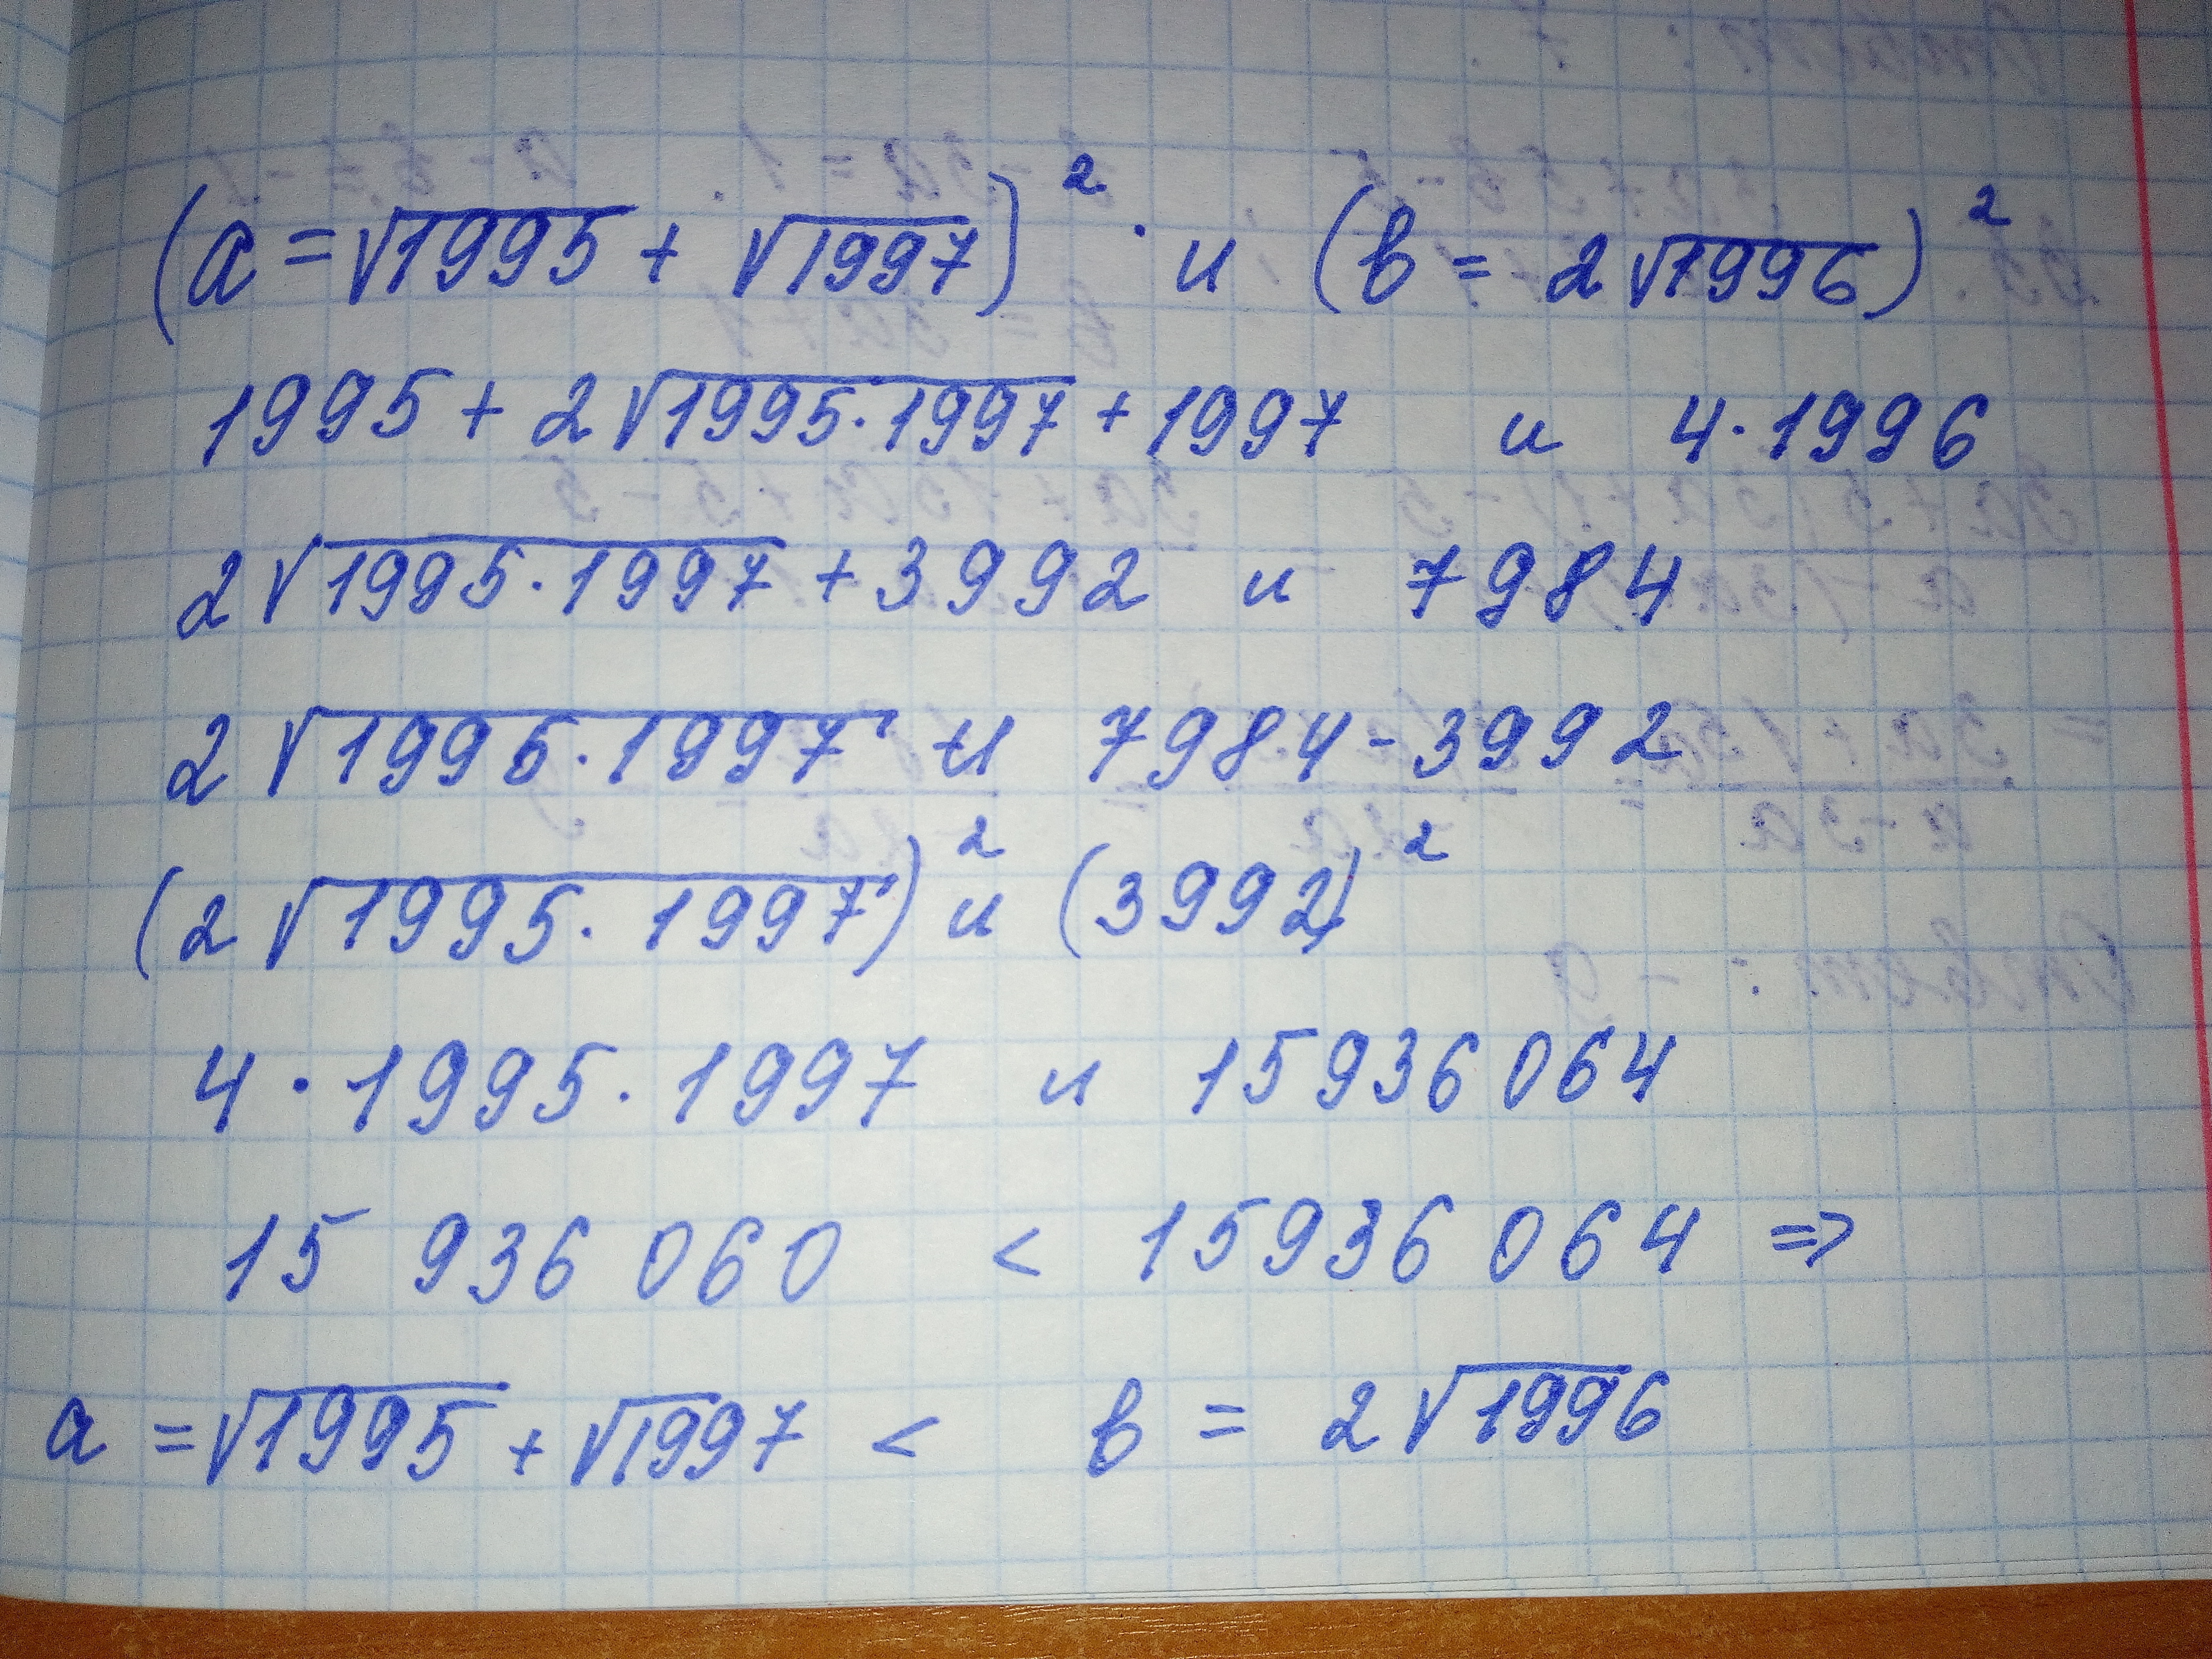 (a = √1995 + √1997)² и (в = 2√1996)²
1995 + 2√1995·1997 + 1997 и 4·1996
2√1995·1997 + 3992 и 7984
2√1995·1997 и 7984 - 3992
(2√1995·1997)² и (3992)²
4·1995·1997 и 15936064
15 936 060 < 15936064 =>
a = √1995 + √1997 < в = 2√1996